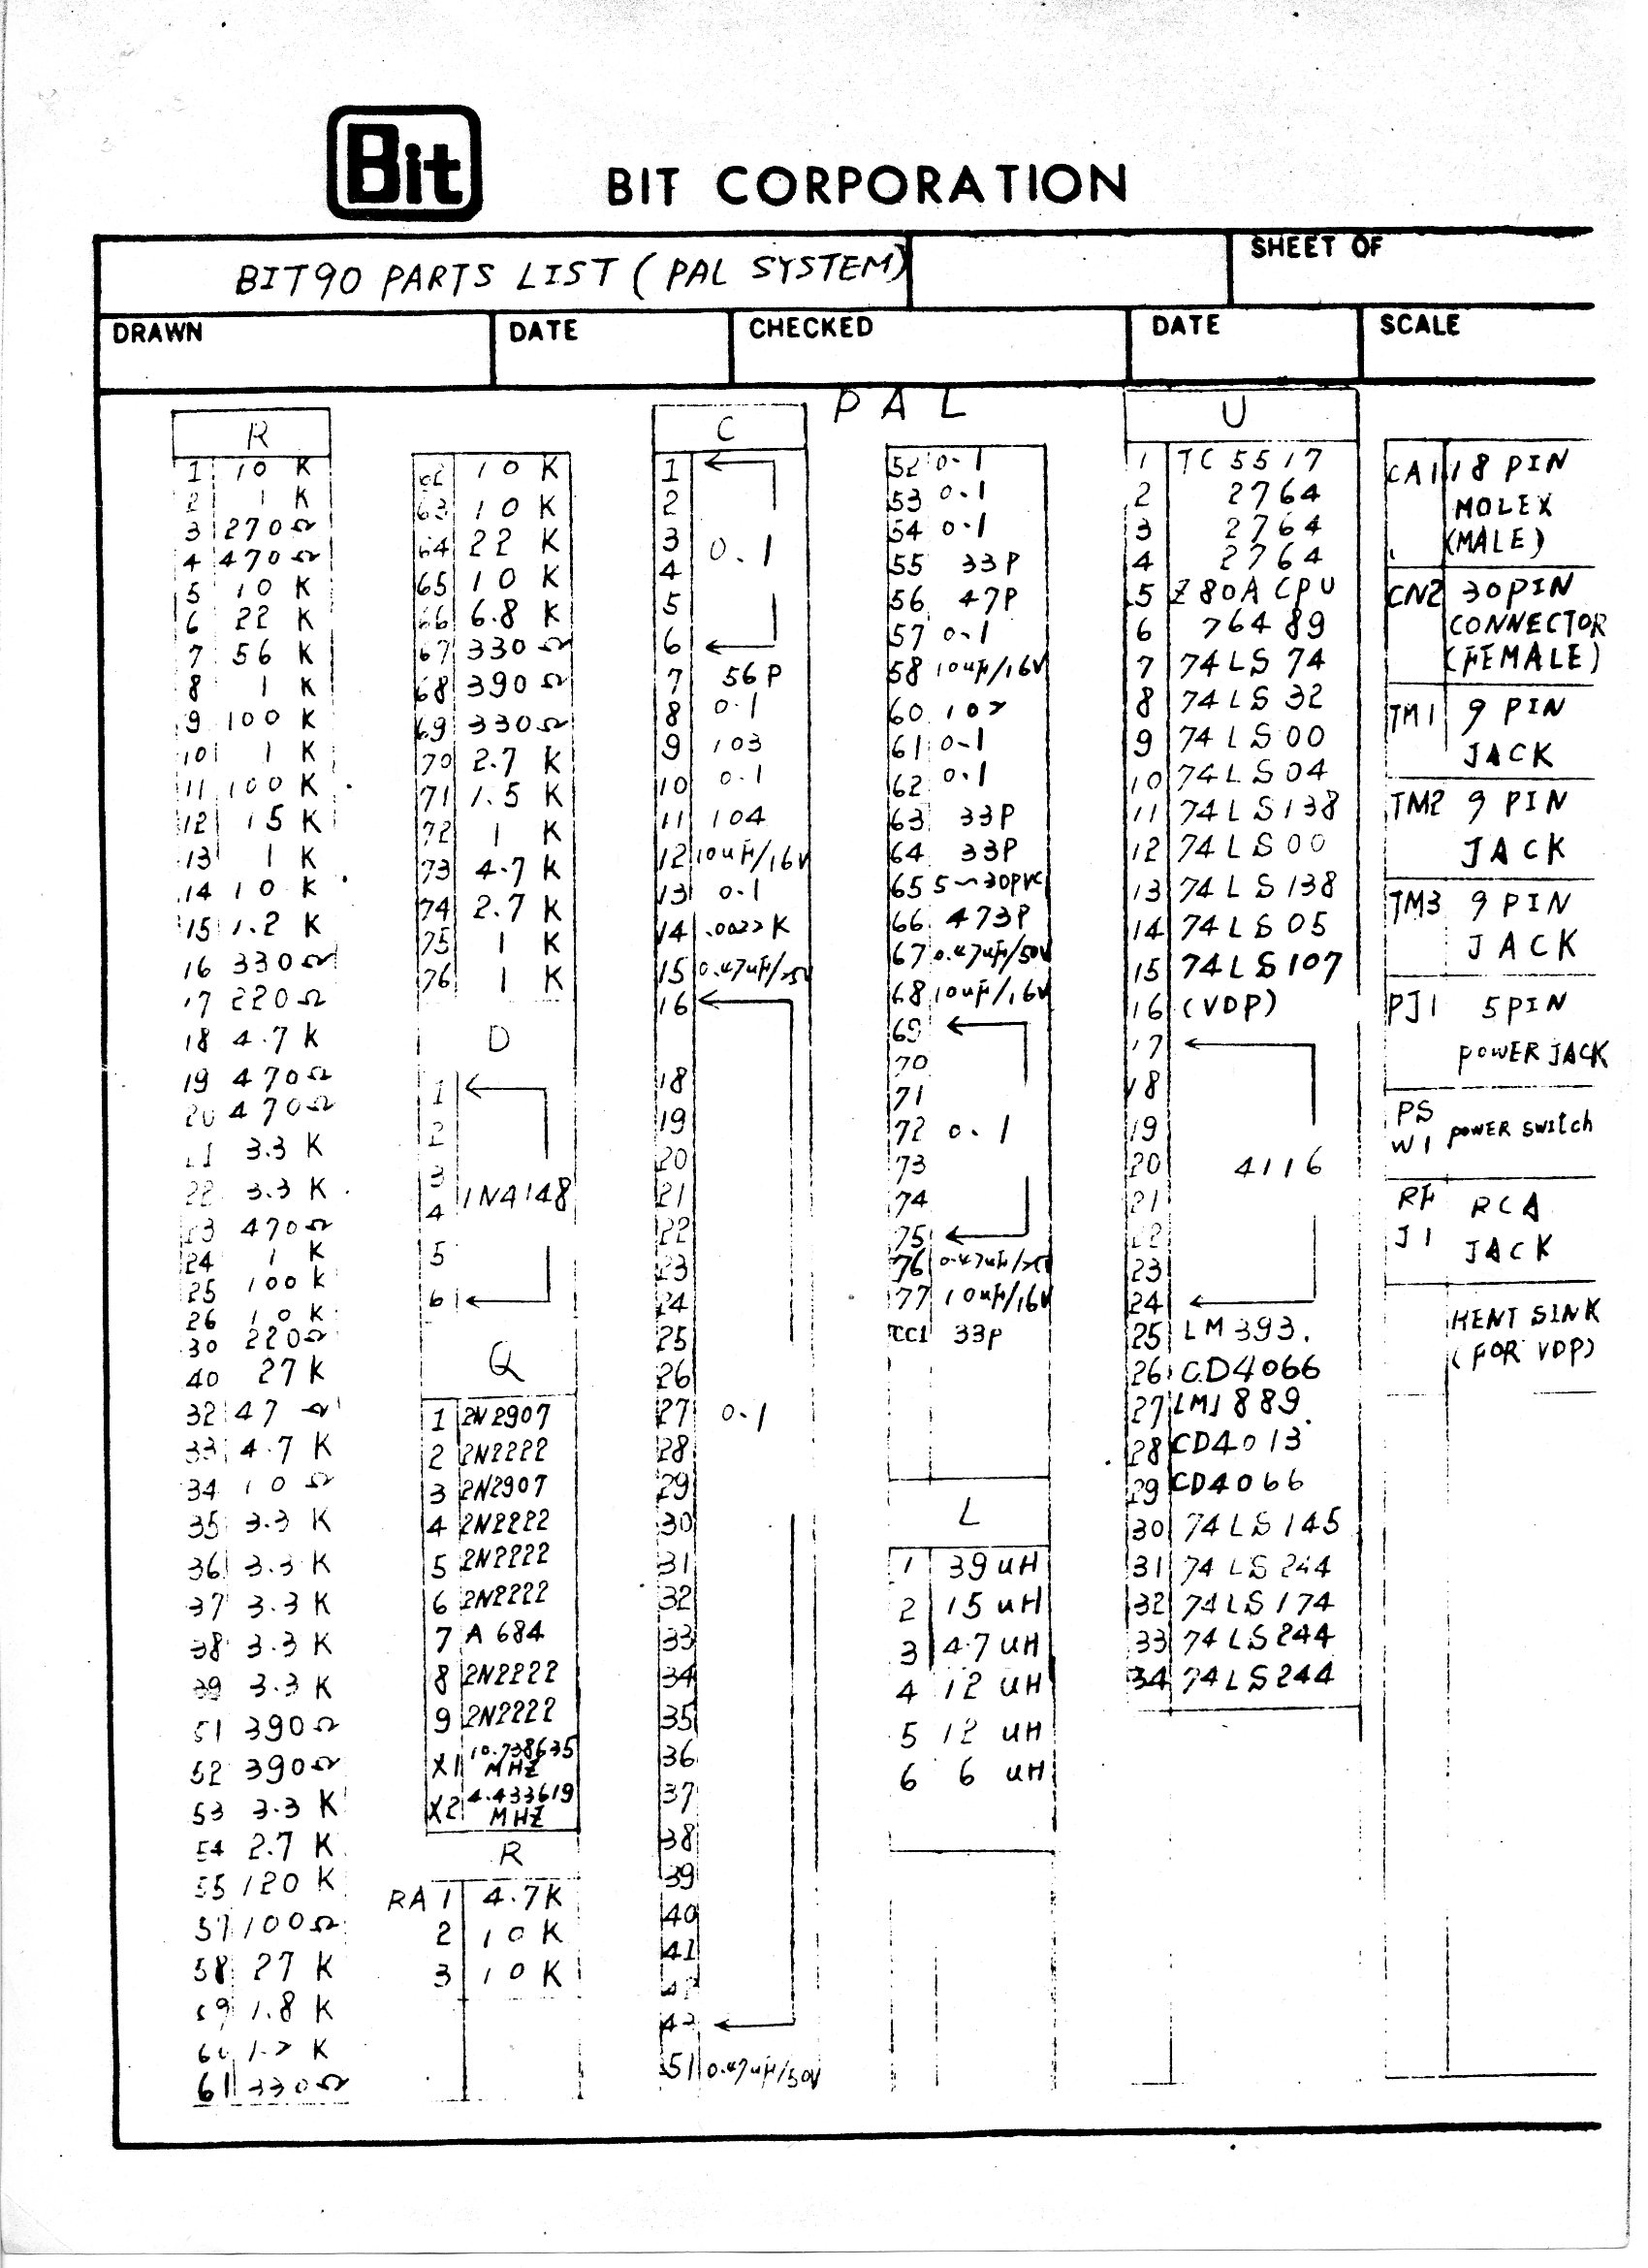 Bit
BIT CORPORATION
BIT90 PARTS LIST (PAL SYSTEM)
SHEET OF
DRAWN
DATE
CHECKED
DATE
SCALE
PAL
R
1 10 K
2 1 K
3 270Ω
4 470Ω
5 10 K
6 22 K
7 56 K
8 1 K
9 100 K
10 1 K
11 100 K
12 15 K
13 1 K
14 10 K
15 1.2 K
16 330Ω
17 220Ω
18 4.7 K
19 470Ω
20 470Ω
3.3 K
22 3.3 K
23 470Ω
24 1 K
25 100 K
26 10 K
30 220Ω
40 27 K
32 47 Ω
33 4.7 K
34 10 Ω
35 3.3 K
36 3.3 K
37 3.3 K
38 3.3 K
39 3.3 K
51 390Ω
52 390Ω
53 3.3 K
54 2.7 K
55 120 K
57 100Ω
58 27 K
59 1.8 K
60 1.2 K
61 330Ω
62 10 K
63 10 K
64 22 K
65 10 K
66 6.8 K
67 330Ω
68 390Ω
69 330Ω
70 2.7 K
71 1.5 K
72 1 K
73 4.7 K
74 2.7 K
75 1 K
76 1 K
D
1
2
3
4 1N4148
5
6
Q
1 2N2907
2 2N2222
3 2N2907
4 2N2222
5 2N2222
6 2N2222
7 A 684
8 2N2222
9 2N2222
X1 10.738635
MHZ
X2 4.433619
MHZ
R
RA 1 4.7K
2 10K
3 10K
C
1
2
3 0.1
4
5
6
7 56P
8 0.1
9 103
10 0.1
11 104
12 10uF/16V
13 0.1
14 .0022K
15 0.47uF/50V
16
18
19
20
21
22
23
24
25
26
27 0.1
28
29
30
31
32
33
34
35
36
37
38
39
40
41
42
43
51 0.47uF/50V
52 0.1
53 0.1
54 0.1
55 33P
56 47P
57 0.1
58 10uF/16V
60 102
61 0.1
62 0.1
63 33P
64 33P
65 5~30PVC
66 473P
67 0.47uF/50V
68 10uF/16V
69
70
71
72 0.1
73
74
75
76 0.47uF/50V
77 10uF/16V
CC1 33P
L
1 39 uH
2 15 uH
3 4.7 uH
4 12 uH
5 12 uH
6 6 uH
U
1 TC 5517
2 2764
3 2764
4 2764
5 Z80A CPU
6 76489
7 74LS74
8 74LS32
9 74LS00
10 74LS04
11 74LS138
12 74LS00
13 74LS138
14 74LS05
15 74LS107
16 (VDP)
17
18
19
20 4116
21
22
23
24
25 LM393.
26 CD4066
27 LM1889
28 CD4013
29 CD4066
30 74LS145
31 74LS244
32 74LS174
33 74LS244
34 74LS244
CA1 18 PIN
MOLEX
(MALE)
CN2 30PIN
CONNECTOR
(FEMALE)
TM1 9 PIN
JACK
TM2 9 PIN
JACK
TM3 9 PIN
JACK
PJ1 5PIN
POWER JACK
PS
W1 POWER SWITCH
RF RCA
J1 JACK
HENT SINK
(FOR VDP)